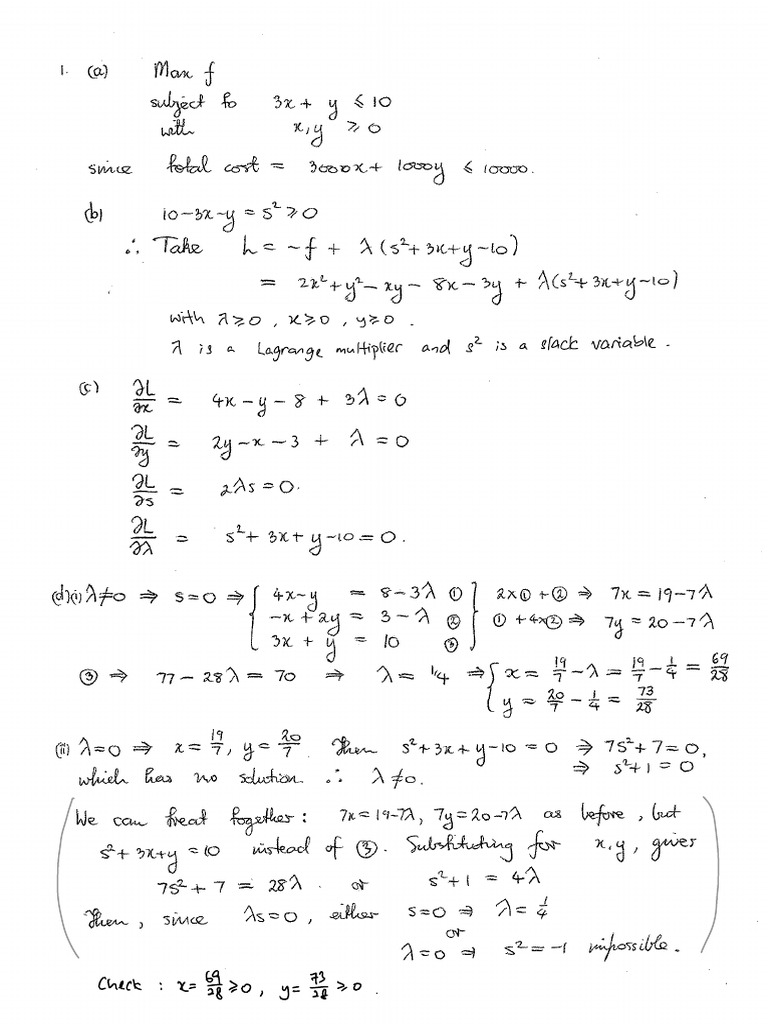 1. (a) Max f
subject to 3x + y ⩽ 10
with x, y ⩾ 0
since total cost = 3000x + 1000y ⩽ 10000.
(b) 10 - 3x - y = s² ⩾ 0
∴ Take L = -f + λ(s² + 3x + y - 10)
= 2x² + y² - xy - 8x - 3y + λ(s² + 3x + y - 10)
with λ ⩾ 0, x ⩾ 0, y ⩾ 0.
λ is a Lagrange multiplier and s² is a slack variable.
(c) ∂L/∂x = 4x - y - 8 + 3λ = 0
∂L/∂y = 2y - x - 3 + λ = 0
∂L/∂s = 2λs = 0.
∂L/∂λ = s² + 3x + y - 10 = 0.
(d)(i) λ ≠ 0 ⇒ s = 0 ⇒ { 4x - y = 8 - 3λ ① } 2×① + ② ⇒ 7x = 19 - 7λ
-x + 2y = 3 - λ ② ① + 4×② ⇒ 7y = 20 - 7λ
3x + y = 10 ③
③ ⇒ 77 - 28λ = 70 ⇒ λ = 1/4 ⇒ { x = 19/7 - λ = 19/7 - 1/4 = 69/28
y = 20/7 - 1/4 = 73/28
(ii) λ = 0 ⇒ x = 19/7, y = 20/7. Then s² + 3x + y - 10 = 0 ⇒ 7s² + 7 = 0,
⇒ s² + 1 = 0
which has no solution. ∴ λ ≠ 0.
(We can treat together: 7x = 19 - 7λ, 7y = 20 - 7λ as before, but
s² + 3x + y = 10 instead of ③. Substituting for x, y, gives
7s² + 7 = 28λ. or s² + 1 = 4λ
Then, since λs = 0, either s = 0 ⇒ λ = 1/4
or
λ = 0 ⇒ s² = -1 impossible.)
Check : x = 69/28 ⩾ 0, y = 73/28 ⩾ 0.